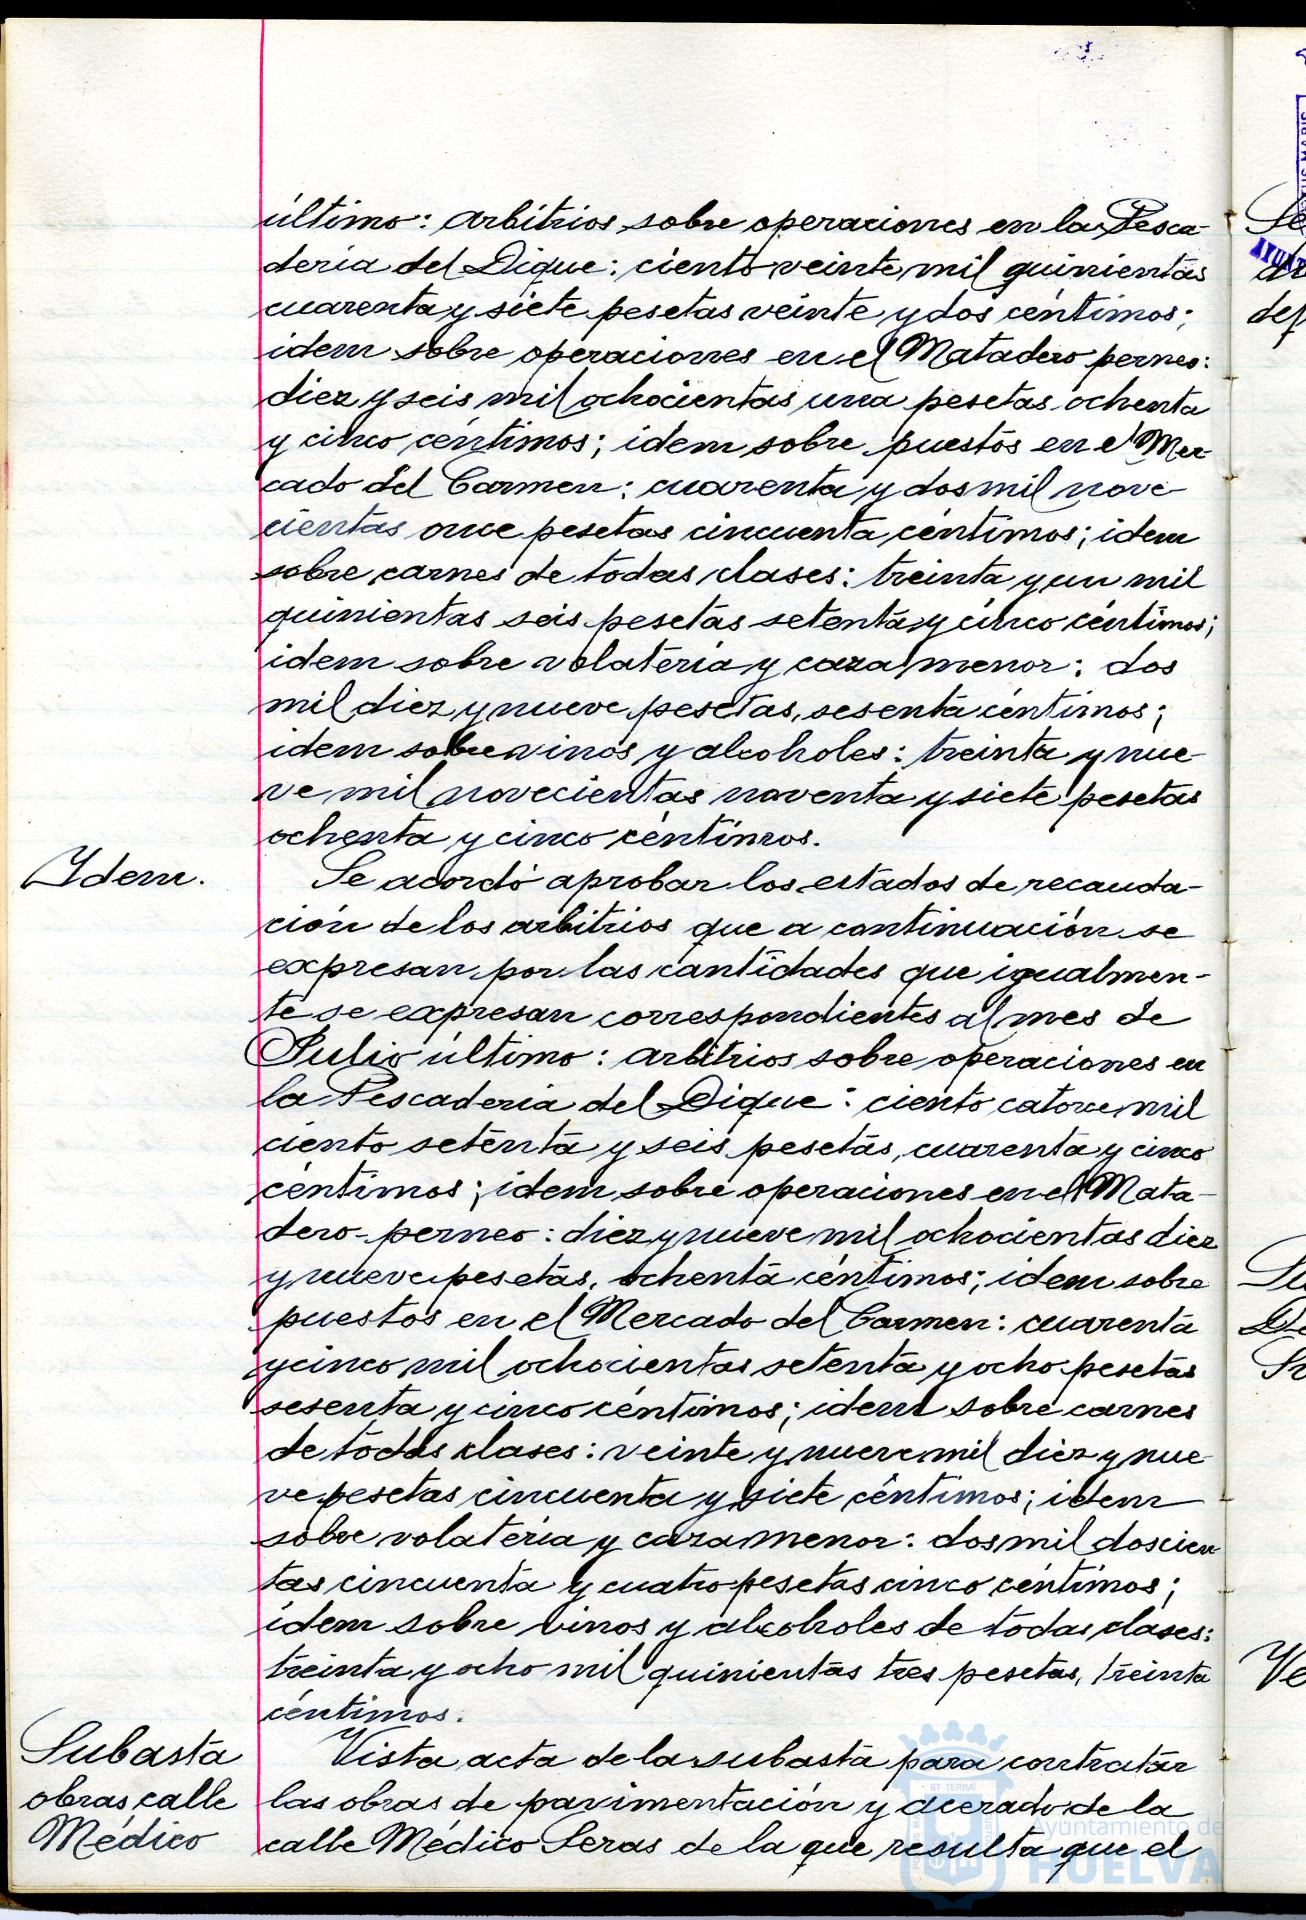 último: arbitrios sobre operaciones en la Pesca-
deria del Dique: ciento veinte mil quinientas
cuarenta y siete pesetas veinte y dos céntimos;
idem sobre operaciones en el Matadero perneo:
diez y seis mil ochocientas una pesetas ochenta
y cinco céntimos; idem sobre puestos en el Mer-
cado del Carmen: cuarenta y dos mil nove-
cientas once pesetas cincuenta céntimos; idem
sobre carnes de todas clases: treinta y un mil
quinientas seis pesetas setenta y cinco céntimos;
idem sobre volateria y caza menor: dos
mil diez y nueve pesetas, sesenta céntimos;
idem sobre vinos y alcoholes: treinta y nue-
ve mil novecientas noventa y siete pesetas
ochenta y cinco céntimos.
Ydem.
Se acordó aprobar los estados de recauda-
ción de los arbitrios que a continuación se
expresan por las cantidades que igualmen-
te se expresan correspondientes al mes de
Julio último: arbitrios sobre operaciones en
la Pescaderia del Dique: ciento catorce mil
ciento setenta y seis pesetas, cuarenta y cinco
céntimos; idem sobre operaciones en el Mata-
dero-perneo: diez y nueve mil ochocientas diez
y nueve pesetas, ochenta céntimos; idem sobre
puestos en el Mercado del Carmen: cuarenta
y cinco mil ochocientas setenta y ocho pesetas
sesenta y cinco céntimos; idem sobre carnes
de todas clases: veinte y nueve mil diez y nue-
ve pesetas cincuenta y siete céntimos; idem
sobre volateria y caza menor: dos mil doscien
tas cincuenta y cuatro pesetas cinco céntimos;
idem sobre vinos y alcoholes de todas clases:
treinta y ocho mil quinientas tres pesetas, treinta
céntimos.
Subasta
obras calle
Médico
Vista acta de la subasta para contratar
las obras de pavimentación y acerado de la
calle Médico Seras de la que resulta que el
Ayuntamiento de
HUELVA